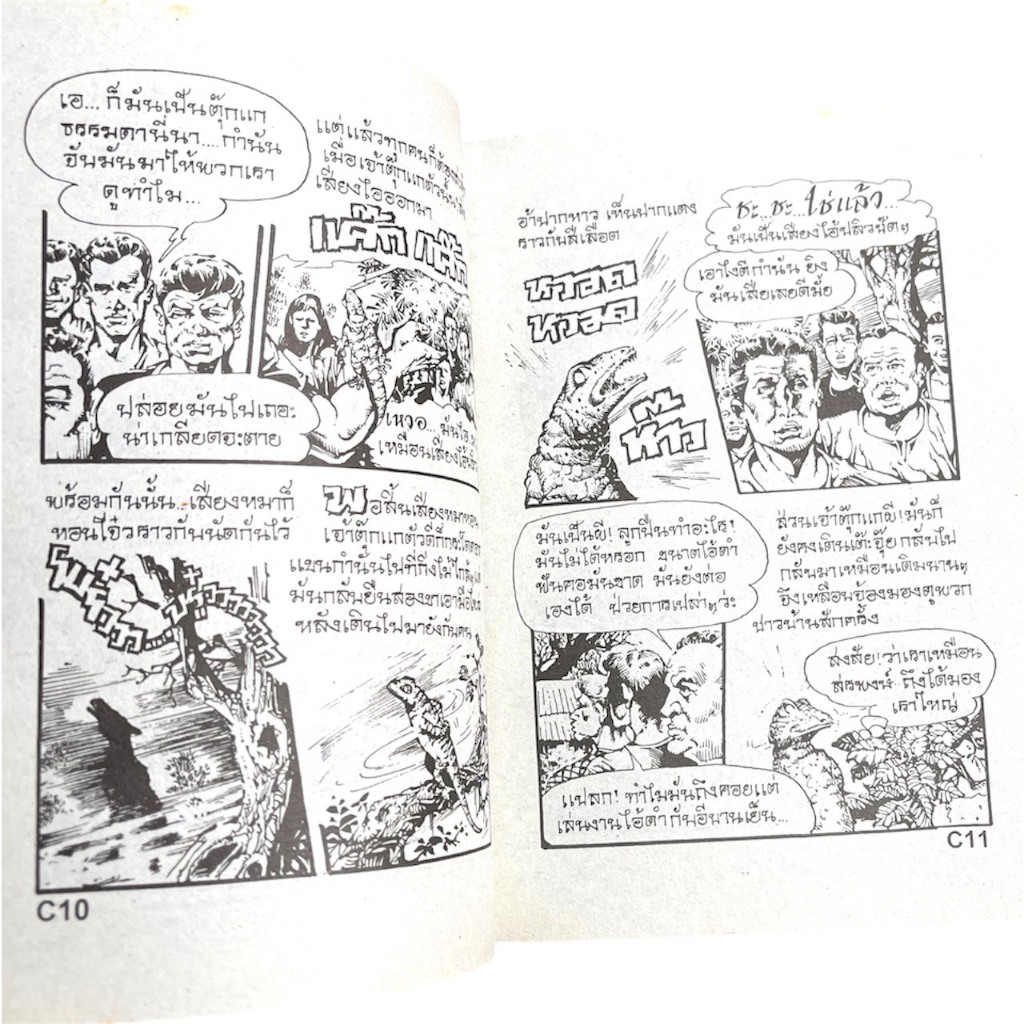 เอ... ก็มันเป็นตุ๊กแก
ธรรมดานี่นา....กำนัน
จับมันมาให้พวกเรา
ดูทำไม...
แต่แล้วทุกคนก็ต้อง
เมื่อเจ้าตุ๊กแกตัวนั้น
เสียงไอออกมา
แค๊ก
ปล่อยมันไปเถอะ
น่าเกลียดจะตาย
เหวอ... มันไอ
เหมือนเสียง
พร้อมกันนั้น..เสียงหมาก็
หอนโจ๋วราวกับนัดกันไว้
พอสิ้นเสียงหมาหอน
เจ้าตุ๊กแกตัวดีก็กระโดด
แขนกำนันไปที่กิ่งไม้ใกล้ๆ
มันกลับยืนสองขาเอามือไพล่
หลังเดินไปมายังกับคน
C10
อ้าปากหาว เห็นปากแดง
ราวกับสีเลือด
หวอด
หวอด
ห๊าว
ชะ...ชะ...ใช่แล้ว...
มันเป็นเสียงไอ้ปลิวชัดๆ
เอาไงดีกำนัน ยิง
มันเสียเลยดีมั้ย
มันเป็นผี! ลูกปืนทำอะไร!
มันไม่ได้หรอก ขนาดไอ้ดำ
ฟันคอมันขาด มันยังต่อ
เองได้ ป่วยการเปล่าๆว่ะ
ส่วนเจ้าตุ๊กแกผี! มันก็
ยังคงเดินเต๊ะจุ๊ย กลับไป
กลับมาเหมือนเดิมนานๆ
จึงเหลือบจ้องมองดูพวก
ชาวบ้านสักครั้ง
สงสัย! ว่าเราเหมือน
สรพงษ์ ถึงได้มอง
เราใหญ่
แปลก! ทำไมมันถึงคอยแต่
เล่นงานไอ้ดำกับอีบานเย็น...
C11